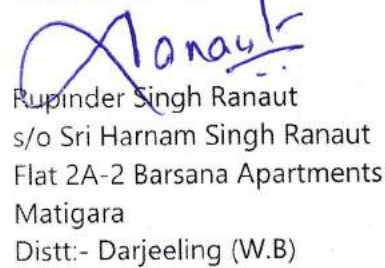 Ranaut
Rupinder Singh Ranaut
s/o Sri Harnam Singh Ranaut
Flat 2A-2 Barsana Apartments
Matigara
Distt:- Darjeeling (W.B)